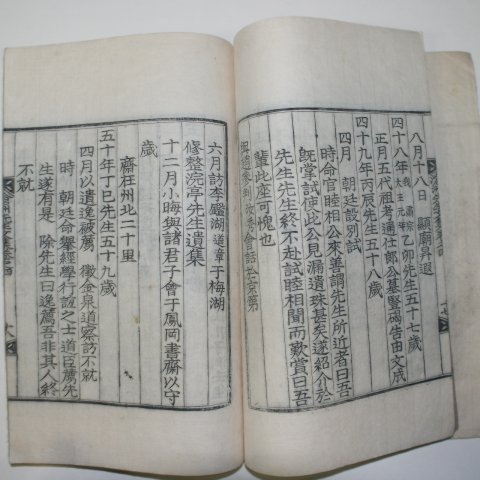 八月十八日 顯廟昇遐
四十八年 肅宗大王元年 乙卯先生五十七歲
正月五代祖考通仕郎公墓竪碣告由文成
四十九年丙辰先生五十八歲
四月 朝廷設別試
時命官睦相公來善謂先生所近者曰吾
旣掌試使此公見漏遺珠甚矣遂紹介於
先生先生終不赴試睦相聞而歎賞曰吾
輩此座可愧也
六月訪李鑑湖道章于梅湖
修整浣亭先生遺集
十二月小晦與諸君子會于鳳岡書齋以守
歲
齋在州北二十里
五十年丁巳先生五十九歲
四月以遺逸被薦 徵金泉道察訪不就
時 朝廷命擧經學行誼之士道臣薦先
生遂有是 除先生曰逸薦吾非其人終
不就